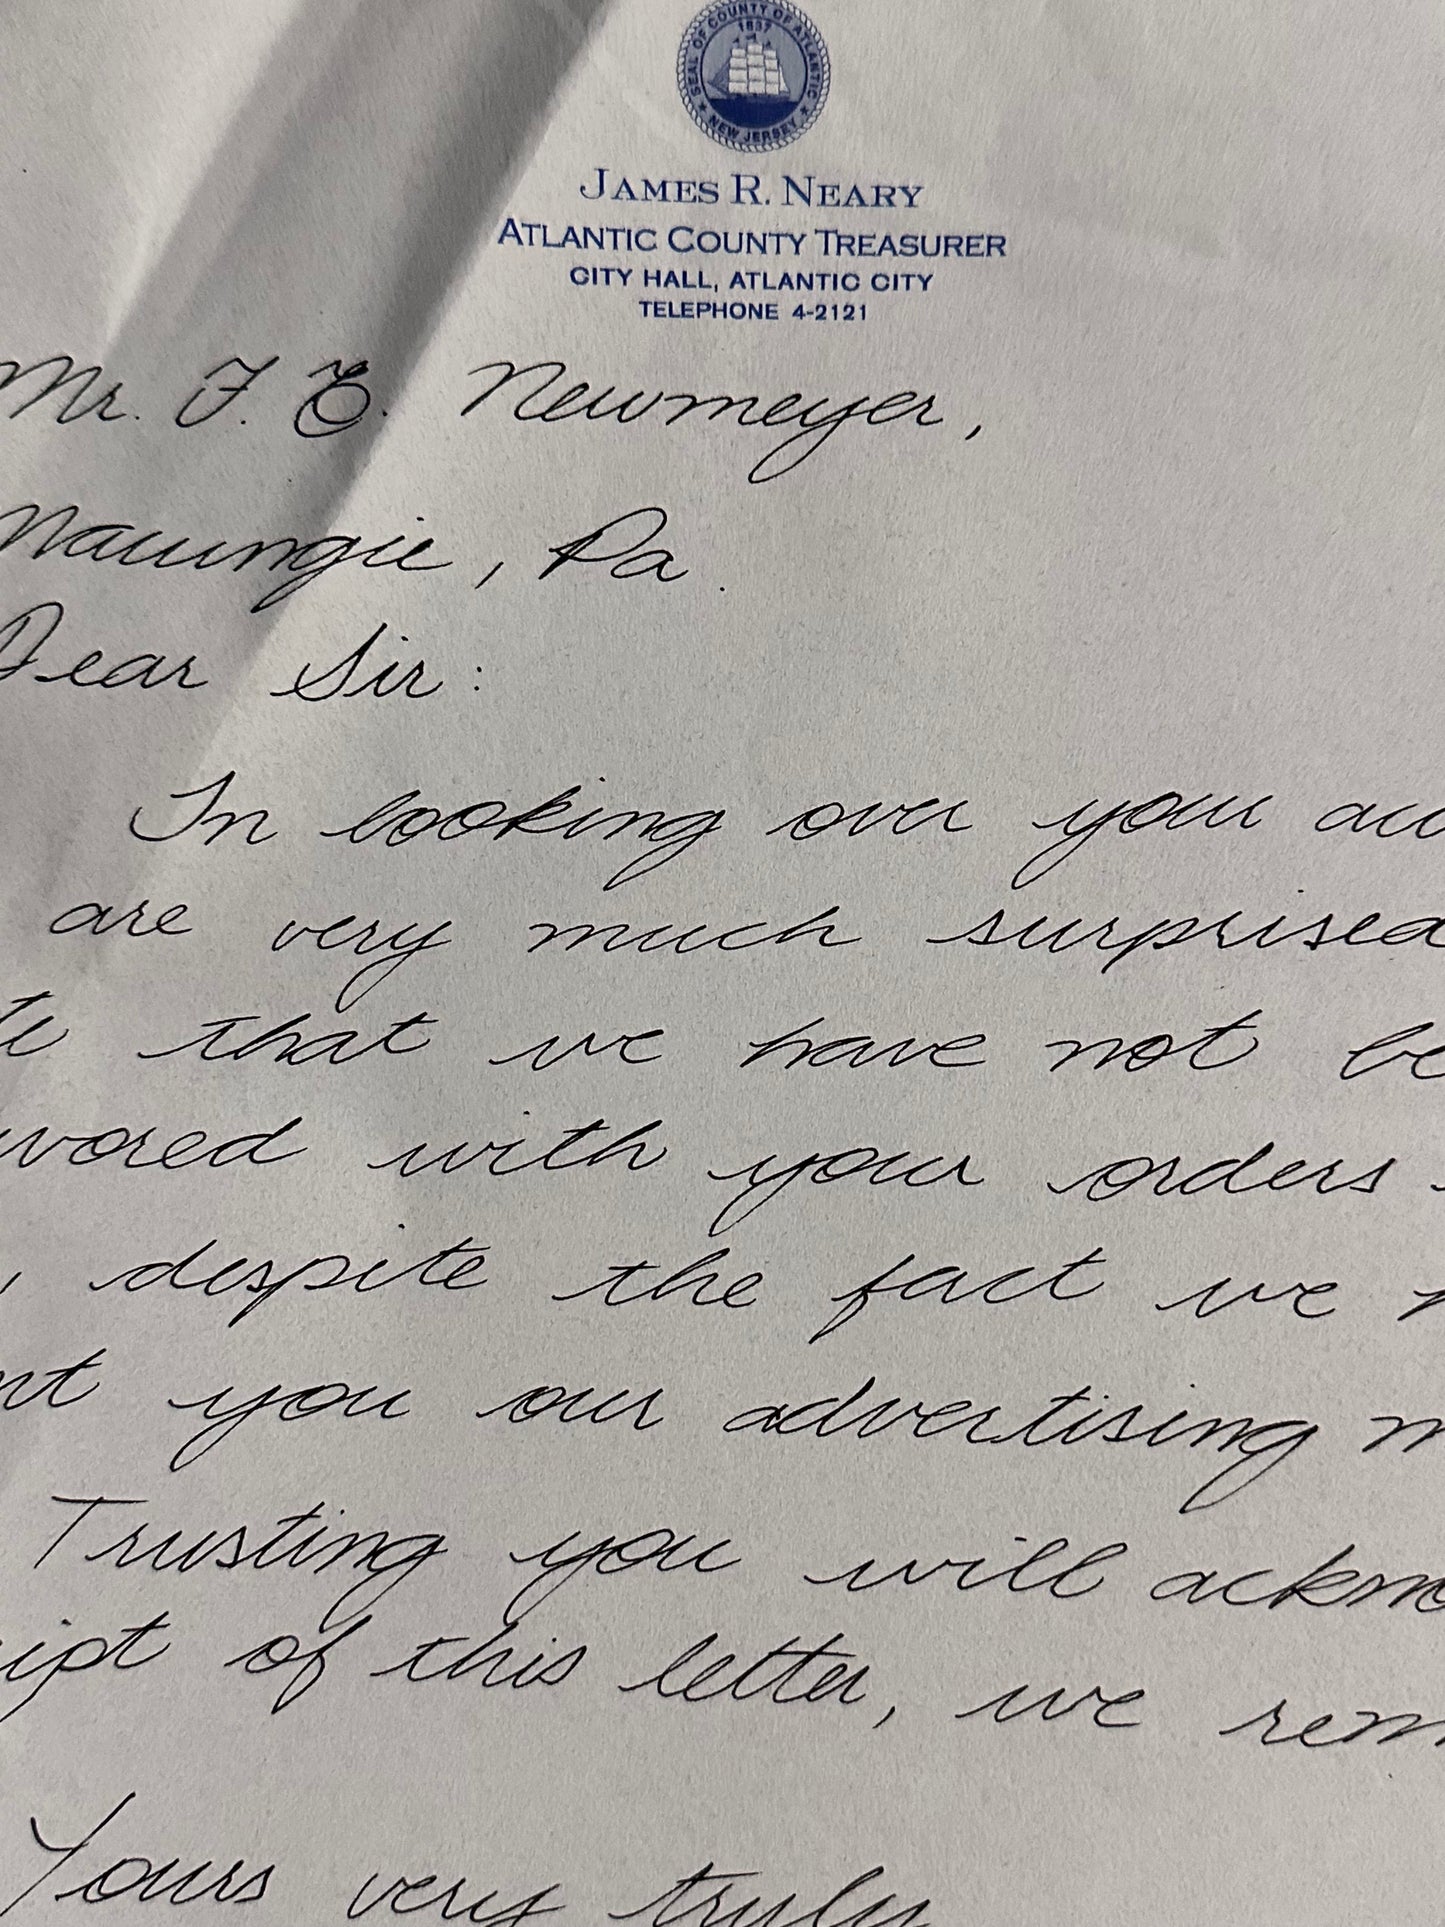 SEAL OF COUNTY OF ATLANTIC
1837
NEW JERSEY
JAMES R. NEARY
ATLANTIC COUNTY TREASURER
CITY HALL, ATLANTIC CITY
TELEPHONE 4-2121
Mr. F. E. Newmeyer,
Macungie, Pa.
Dear Sir:
In looking over your
are very much surprised
that we have not be
vored with your orders
, despite the fact we
nt you our advertising m
Trusting you will ackno
ipt of this letter, we rem
Yours very truly